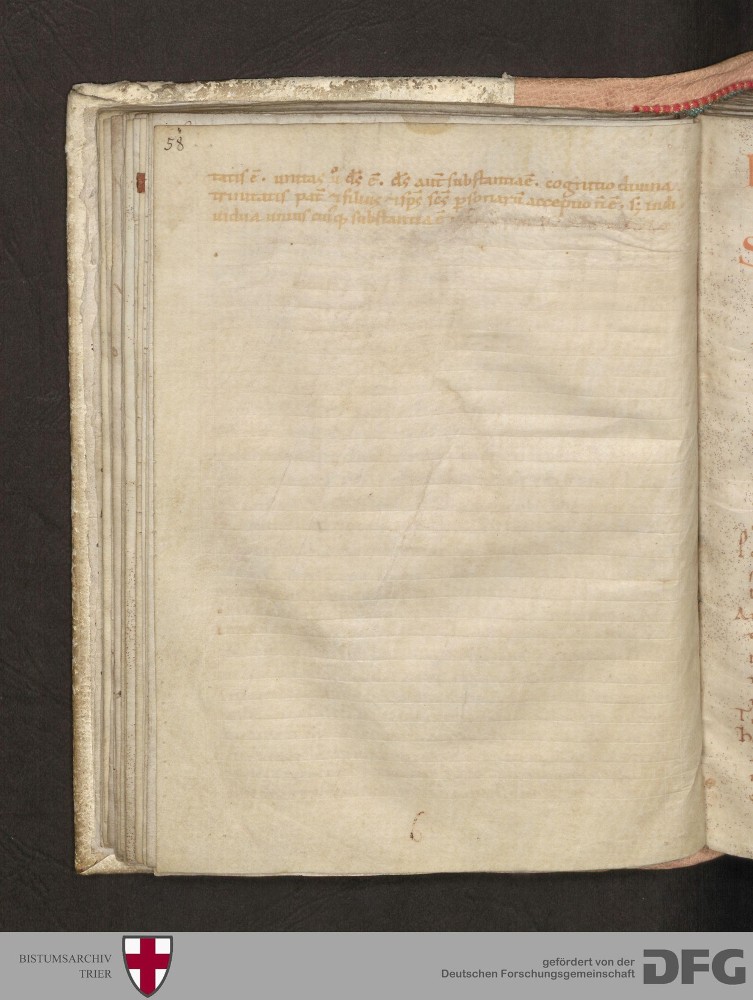 58
tatis ē. unitas ū dſ ē. dſ aut̄ substantia ē. cognitio diuina
trinitatis pat̄ & filius & sp̄s sc̄s personarū acceptio n̄ ē. sꝫ indi
uidua unius cuiꝗ substantia ē
6
BISTUMSARCHIV
TRIER
gefördert von der
Deutschen Forschungsgemeinschaft
DFG